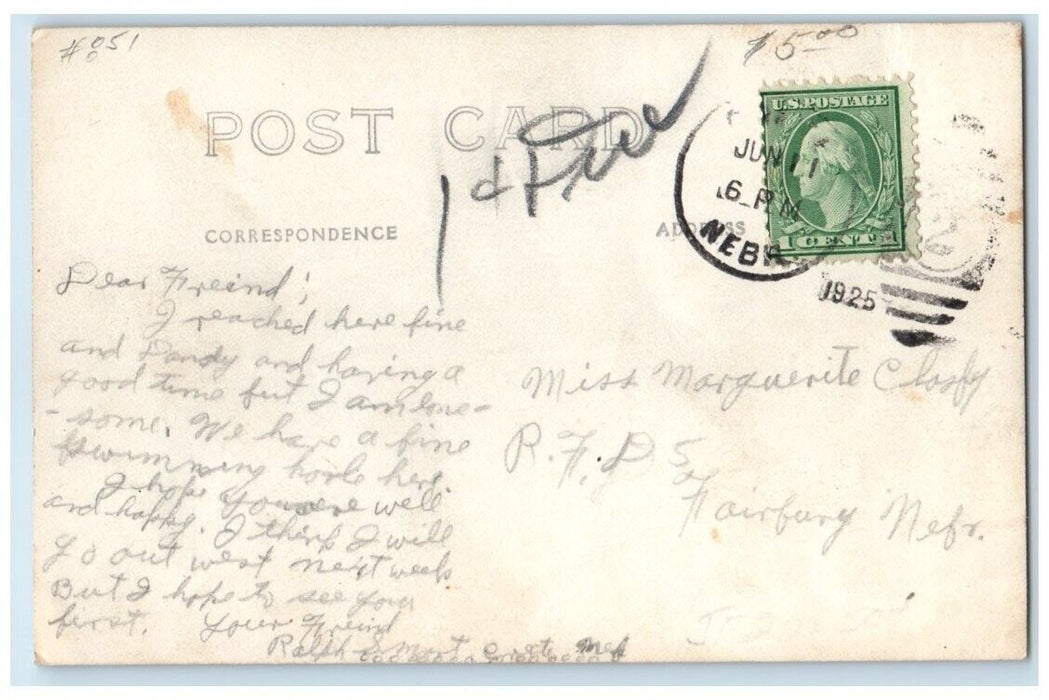 #051
$5.00
POST CARD
U.S. POSTAGE
1 CENT 1
JUN 11
6 PM
NEBR
1925
CORRESPONDENCE
ADDRESS
Dear Freind;
I reached here fine
and Dandy and having a
good time but I am lone-
-some. We have a fine
swimming hoole here.
I hope you are well
and happy. I think I will
go out west next week
But I hope to see you
first. Your Freind
Ralph Smart Crete Neb
Miss Marguerite
R.F.D 5
Fairbury Nebr.